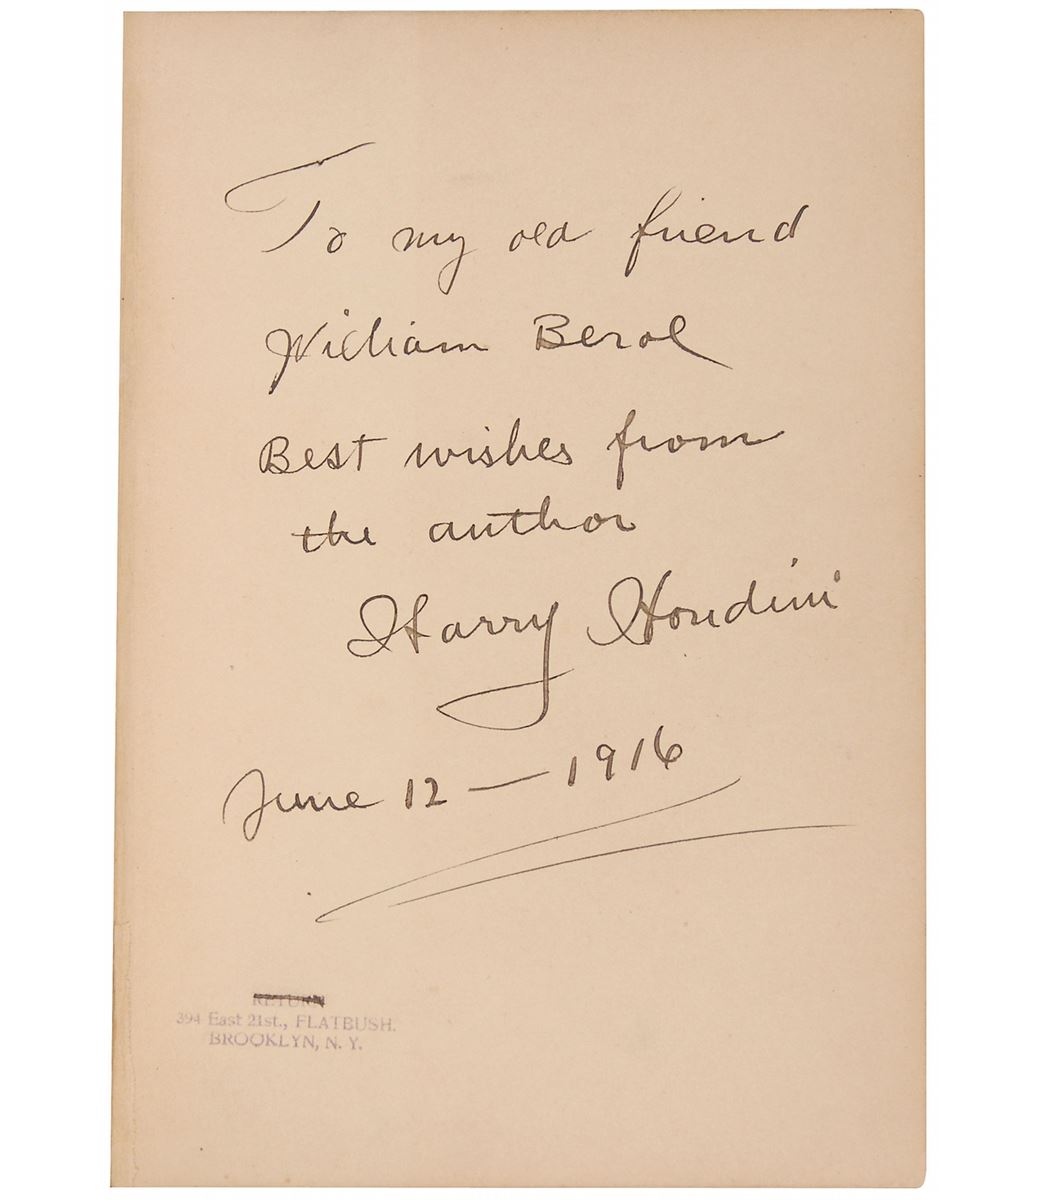 To my old friend
William Berol
Best wishes from
the author
Harry Houdini
June 12 — 1916
RETURN
394 East 21st., FLATBUSH.
BROOKLYN, N. Y.